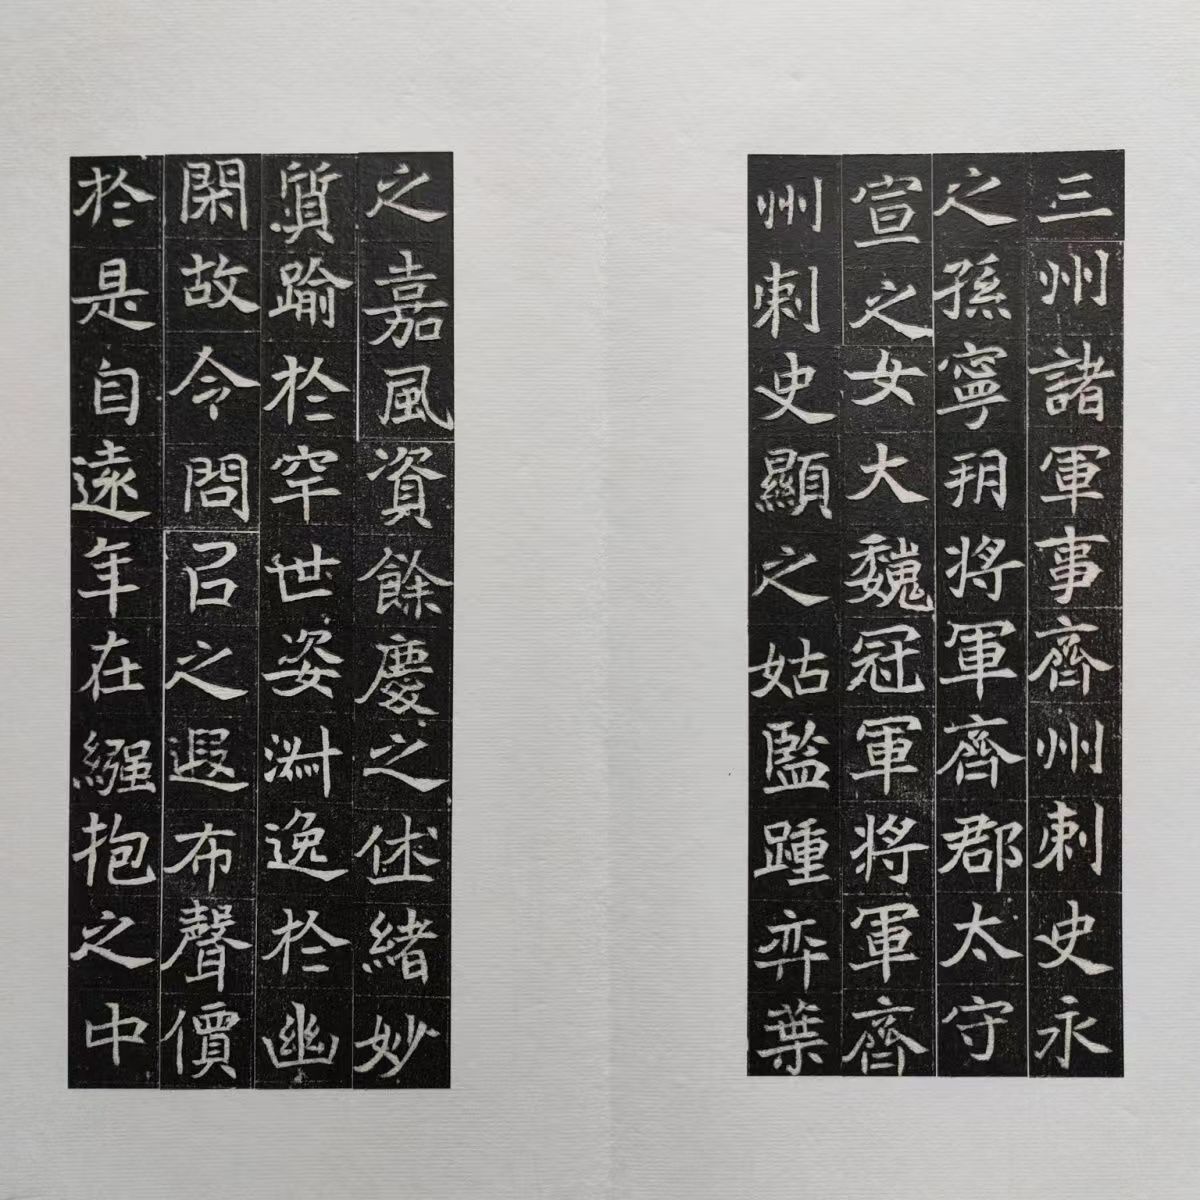 三州諸軍事齊州刺史永
之孫寧玥將軍齊郡太守
宣之女大魏冠軍將軍齊
州刺史顯之姑監踵弈葉
之嘉風資餘慶之休緒妙
質踰於罕世姿淵逸於幽
閑故令問召之遐布聲價
於是自遠年在繈抱之中